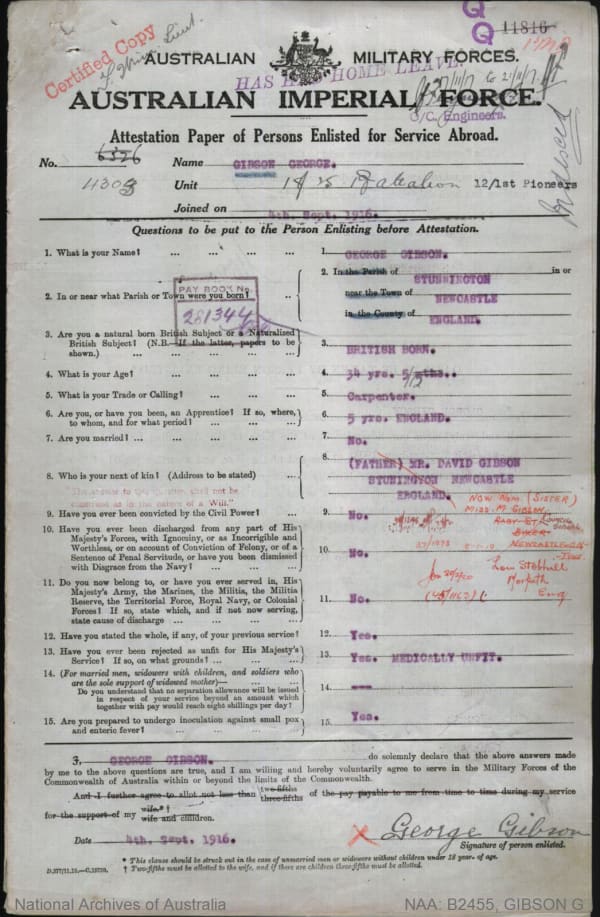 Q
Q
11816
Certified Copy
Lieut.
AUSTRALIAN MILITARY FORCES.
HAS HAD HOME LEAVE.
AUSTRALIAN IMPERIAL FORCE.
O/C. Engineers.
Attestation Paper of Persons Enlisted for Service Abroad.
No. 6526 Name GIBSON GEORGE.
Unit Battalion 12/1st Pioneers
Joined on 4th. Sept. 1916.
Questions to be put to the Person Enlisting before Attestation.
1. What is your Name? ... ... ... ... 1. GEORGE GIBSON.
2. In or near what Parish or Town were you born? .. 2. In the Parish of STUNNINGTON in or
near the Town of NEWCASTLE
in the County of ENGLAND.
PAY BOOK No.
281344
3. Are you a natural born British Subject or a Naturalized
British Subject? (N.B.—If the latter, papers to be
shown.) ... ... ... ... 3. BRITISH BORN.
4. What is your Age? ... ... ... ... 4. 34 yrs. 5/12
5. What is your Trade or Calling? ... ... ... 5. Carpenter.
6. Are you, or have you been, an Apprentice? If so, where,
to whom, and for what period? ... ... ... 6. 5 yrs. ENGLAND.
7. Are you married? ... ... ... ... 7. No.
8. Who is your next of kin? (Address to be stated) ... 8. (FATHER) MR. DAVID GIBSON
STUNINGTON NEWCASTLE
ENGLAND.
The answer to this question shall not be
construed as in the nature of a Will."
NOW NOK (SISTER)
MISS. M. GIBSON
RABY ST.
BYKER
NEWCASTLE-ON-
TYNE.
Morpeth
Eng
9. Have you ever been convicted by the Civil Power? ... 9. No.
10. Have you ever been discharged from any part of His
Majesty's Forces, with Ignominy, or as Incorrigible and
Worthless, or on account of Conviction of Felony, or of a
Sentence of Penal Servitude, or have you been dismissed
with Disgrace from the Navy? ... ... ... 10. No.
11. Do you now belong to, or have you ever served in, His
Majesty's Army, the Marines, the Militia, the Militia
Reserve, the Territorial Force, Royal Navy, or Colonial
Forces? If so, state which, and if not now serving,
state cause of discharge ... ... ... ... 11. No.
12. Have you stated the whole, if any, of your previous service? 12. Yes.
13. Have you ever been rejected as unfit for His Majesty's
Service? If so, on what grounds? ... ... ... 13. Yes. MEDICALLY UNFIT.
14. (For married men, widowers with children, and soldiers who
are the sole support of widowed mother)— ... ...
Do you understand that no separation allowance will be issued
in respect of your service beyond an amount which
together with pay would reach eight shillings per day? 14. ---
15. Are you prepared to undergo inoculation against small pox
and enteric fever? ... ... ... ... 15. Yes.
I, GEORGE GIBSON. do solemnly declare that the above answers made
by me to the above questions are true, and I am willing and hereby voluntarily agree to serve in the Military Forces of the
Commonwealth of Australia within or beyond the limits of the Commonwealth.
And I further agree to allot not less than two-fifths three-fifths of the pay payable to me from time to time during my service
for the support of my wife.*† wife and children.
Date 4th. Sept. 1916. George Gibson
Signature of person enlisted.
* This clause should be struck out in the case of unmarried men or widowers without children under 18 year. of age.
† Two-fifths must be allotted to the wife, and if there are children three-fifths must be allotted.
National Archives of Australia NAA: B2455, GIBSON G